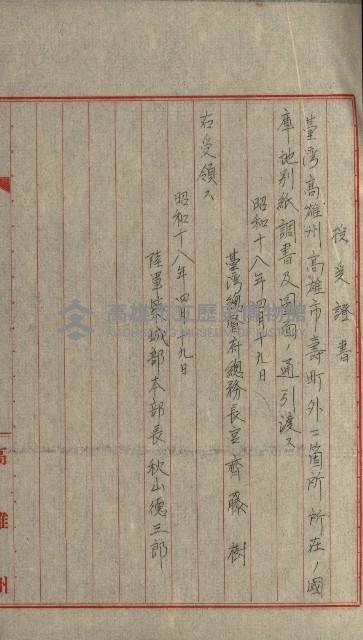 授受證書
臺灣高雄州高雄市壽町外二箇所所在ノ國
庫地別紙調書及圖面ノ通引渡ス
昭和十八年四月十九日
臺灣總督府總務長官 齊藤 樹
右受領ス
昭和十八年四月十九日
陸軍築城部本部長 秋山德三郎
高雄州
高雄市立歷史博物館
KAOHSIUNG MUSEUM OF HISTORY